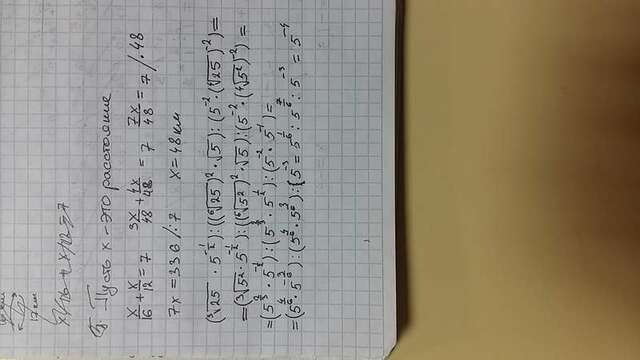 17 км
x/16 + x/12 = 7
Пусть x - это расстояние
x/16 + x/12 = 7 3x/48 + 4x/48 = 7 7x/48 = 7 /· 48
7x = 336 /:7 x = 48 км
(∛25 · 5^(-1/2)) : ((⁶√25)² · √5) : (5^(-2) · (⁴√25)^(-2)) =
= (∛5² · 5^(-1/2)) : ((⁶√5²)² · √5) : (5^(-2) · (⁴√5²)^(-2)) =
= (5^(2/3) · 5^(-1/2)) : (5^(2/3) · 5^(1/2)) : (5^(-2) · 5^(-1)) =
= (5^(4/6) · 5^(-3/6)) : (5^(4/6) · 5^(3/6)) : (5^(-3) = 5^(1/6) : 5^(7/6) : 5^(-3) = 5^(-4)